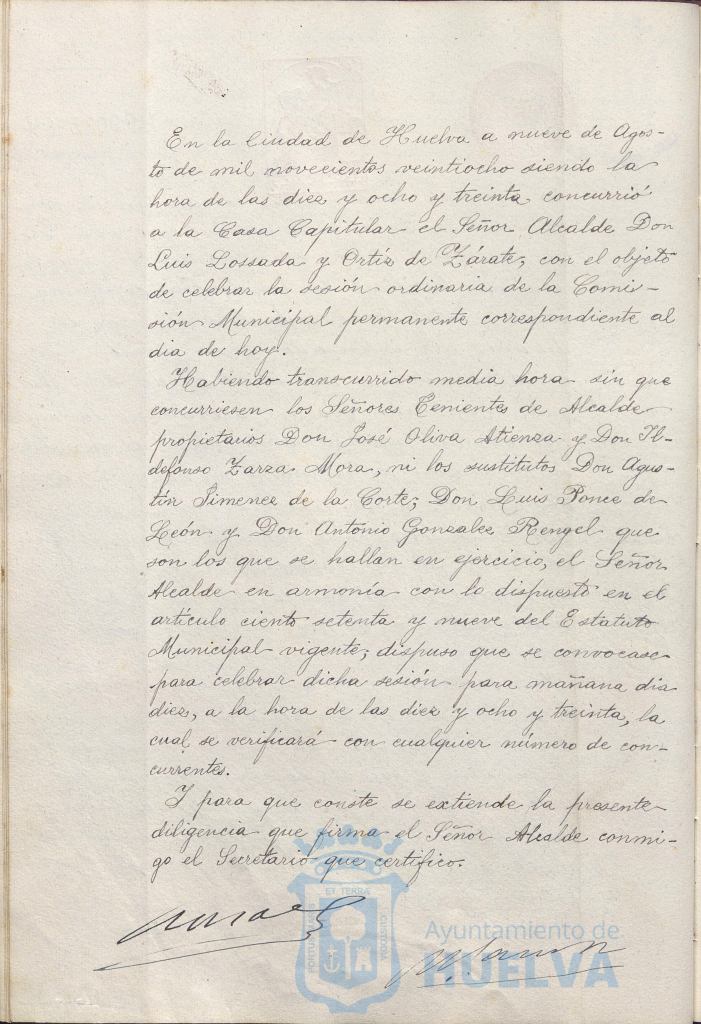 En la Ciudad de Huelva a nueve de Agos-
to de mil novecientos veintiocho siendo la
hora de las diez y ocho y treinta concurrió
a la Casa Capitular el Señor Alcalde Don
Luis Lossada y Ortiz de Zárate, con el objeto
de celebrar la sesión ordinaria de la Comi-
sión Municipal permanente correspondiente al
dia de hoy.
Habiendo transcurrido media hora sin que
concurriesen los Señores Tenientes de Alcalde
propietarios Don José Oliva Atienza y Don Il-
defonso Zarza Mora, ni los sustitutos Don Agus-
tín Jimenez de la Corte; Don Luis Ponce de
León y Don Antonio Gonzalez Rengel que
son los que se hallan en ejercicio, el Señor
Alcalde en armonía con lo dispuesto en el
artículo ciento setenta y nueve del Estatuto
Municipal vigente; dispuso que se convocase
para celebrar dicha sesión para mañana dia
diez, a la hora de las diez y ocho y treinta, la
cual se verificará con cualquier número de con-
currentes.
I para que conste se extiende la presente
diligencia que firma el Señor Alcalde conmi-
go el Secretario que certifico.
EX TERRA
PORTUS MARIS
CUSTODIA
Ayuntamiento de
HUELVA